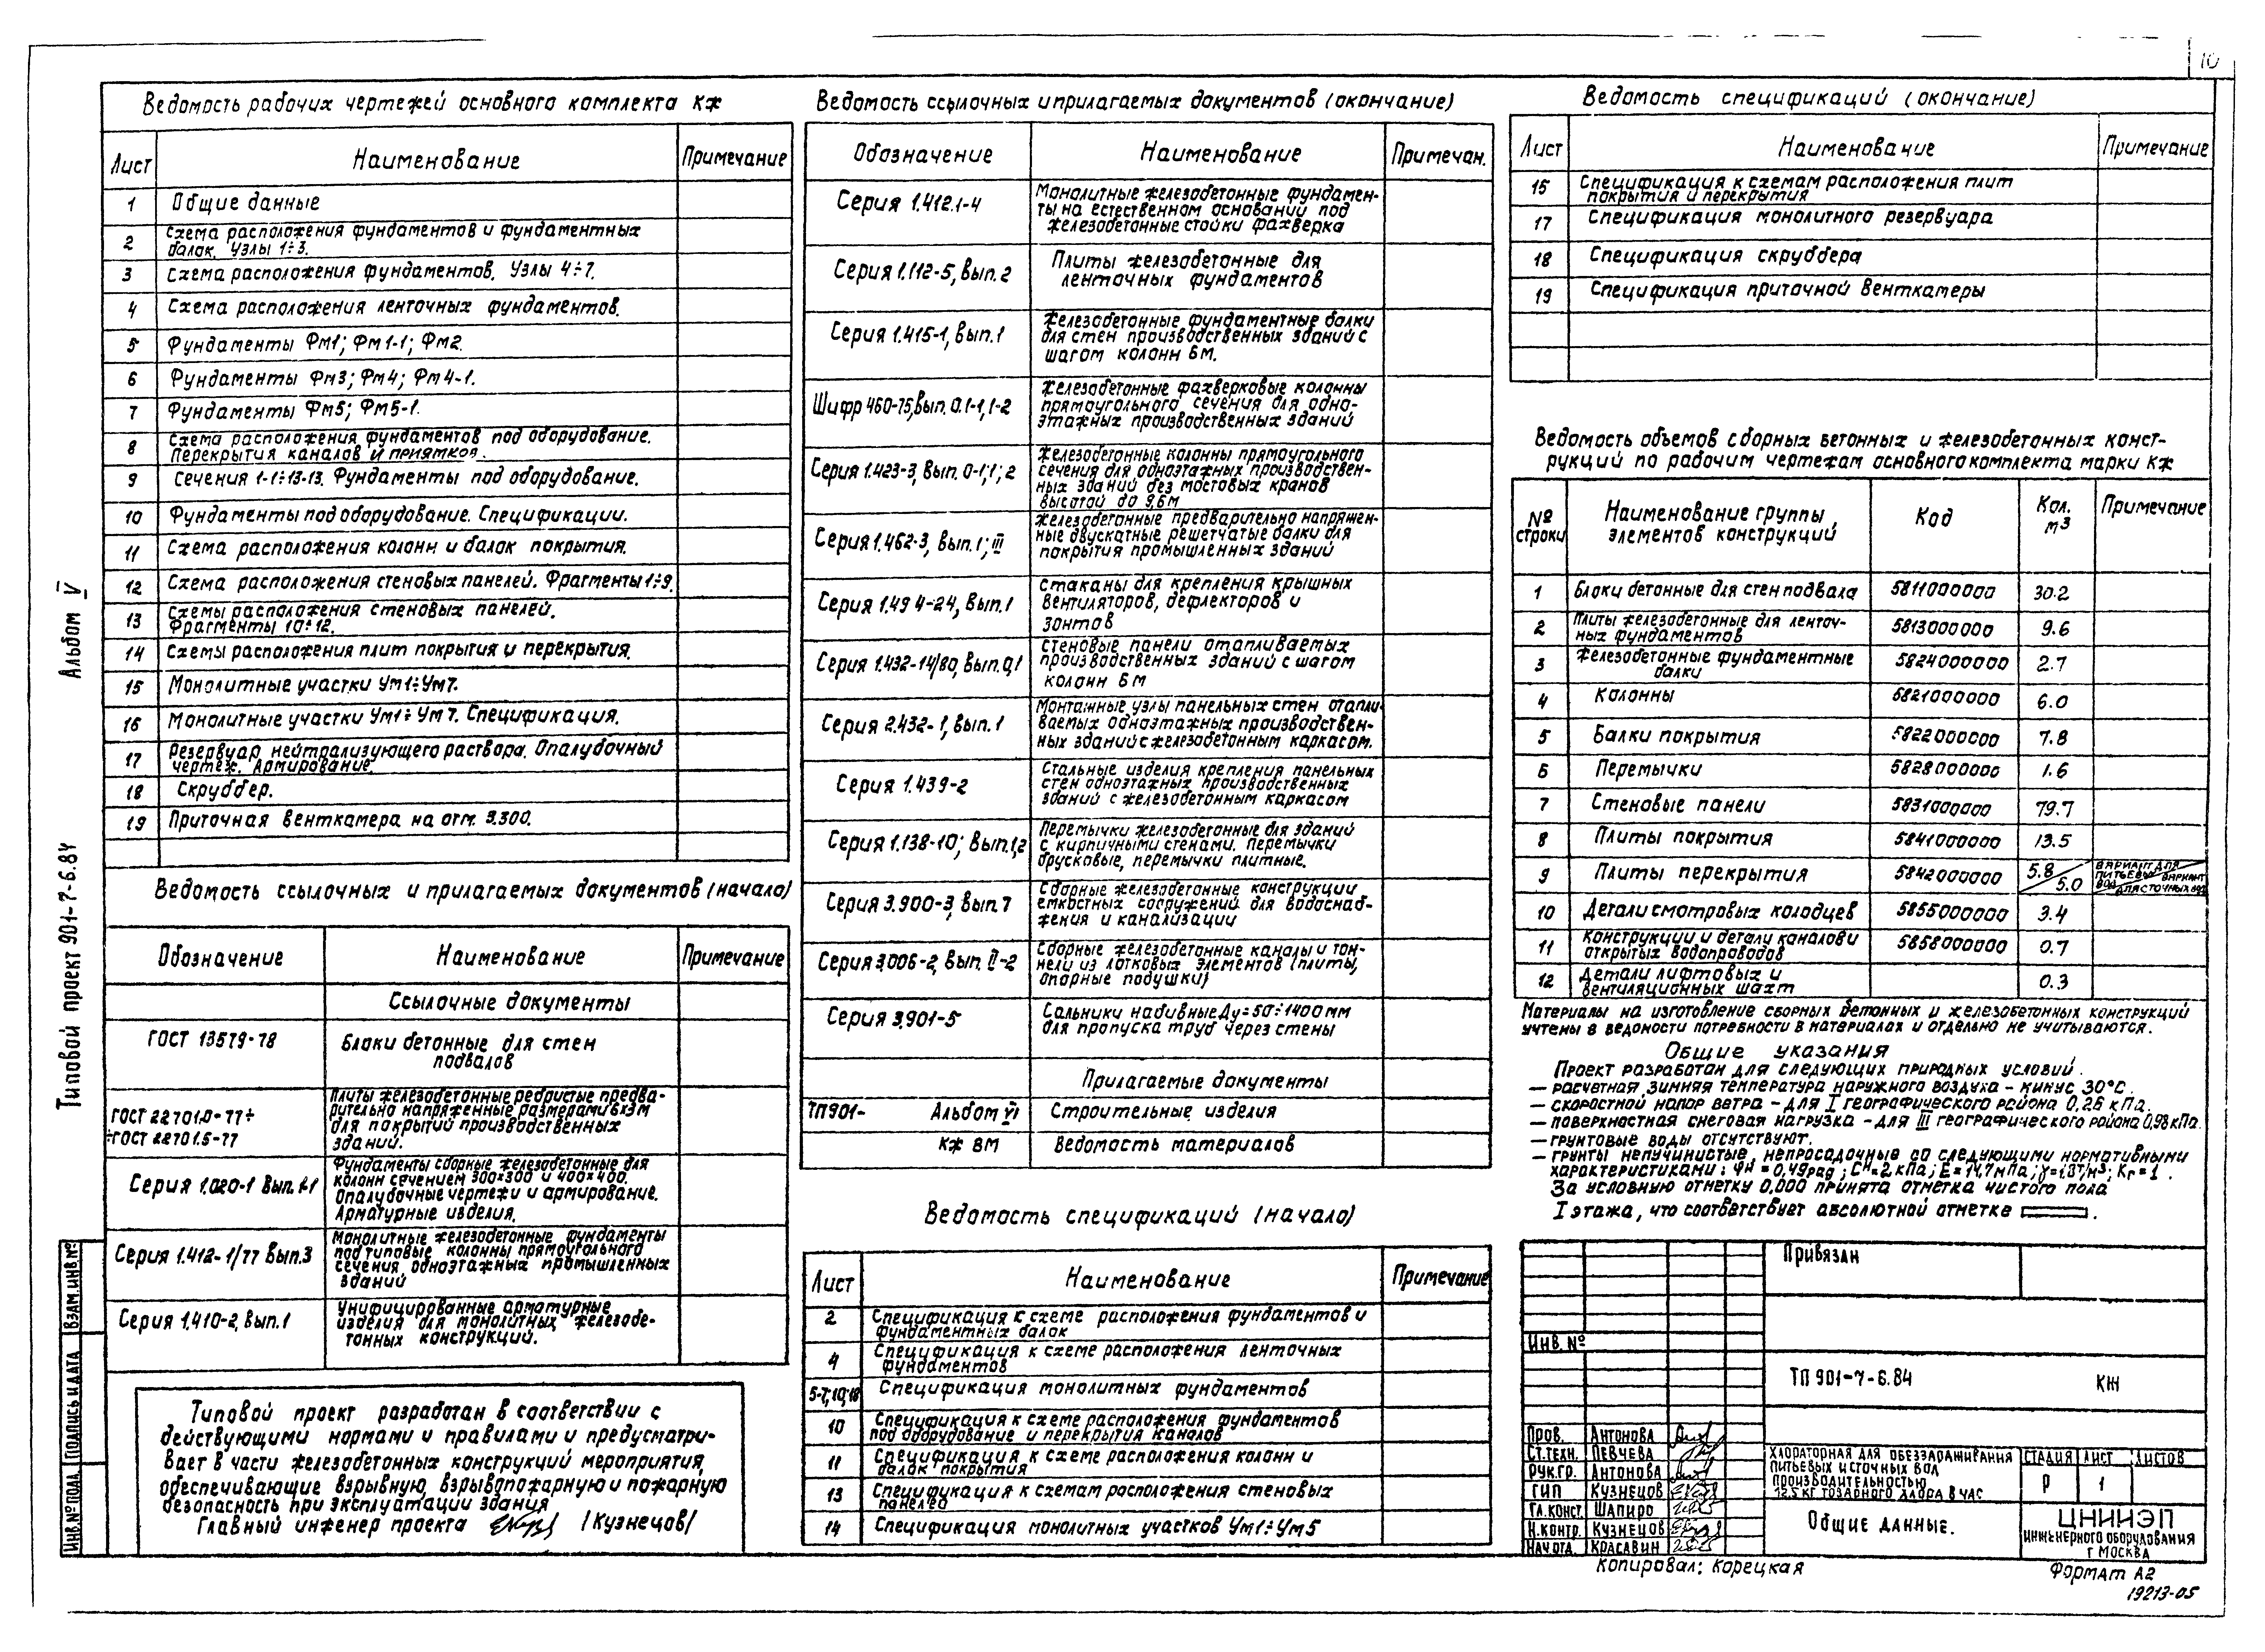 10
Ведомость рабочих чертежей основного комплекта КЖ
Лист Наименование Примечание
1 Общие данные
2 Схема расположения фундаментов и фундаментных
балок. Узлы 1÷3.
3 Схема расположения фундаментов. Узлы 4÷7.
4 Схема расположения ленточных фундаментов.
5 Фундаменты Фм1; Фм1-1; Фм2.
6 Фундаменты Фм3; Фм4; Фм4-1.
7 Фундаменты Фм5; Фм5-1.
8 Схема расположения фундаментов под оборудование.
Перекрытия каналов и приямков.
9 Сечения 1-1÷13-13. Фундаменты под оборудование.
10 Фундаменты под оборудование. Спецификации.
11 Схема расположения колонн и балок покрытия.
12 Схема расположения стеновых панелей. Фрагменты 1÷9.
13 Схемы расположения стеновых панелей.
Фрагменты 10÷12.
14 Схемы расположения плит покрытия и перекрытия.
15 Монолитные участки Ум1÷Ум7.
16 Монолитные участки Ум1÷Ум7. Спецификация.
17 Резервуар нейтрализующего раствора. Опалубочный
чертеж. Армирование.
18 Скруббер.
19 Приточная венткамера на отм. 3.300.
Ведомость ссылочных и прилагаемых документов (начало)
Обозначение Наименование Примечание
Ссылочные документы
ГОСТ 13579-78 Блоки бетонные для стен
подвалов
ГОСТ 22701.0-77÷
÷ГОСТ 22701.5-77
Плиты железобетонные ребристые предва-
рительно напряженные размерами 6х3м
для покрытий производственных
зданий.
Серия 1.020-1 Вып. 1-1
Фундаменты сборные железобетонные для
колонн сечением 300×300 и 400×400.
Опалубочные чертежи и армирование.
Арматурные изделия.
Серия 1.412-1/77 Вып.3
Монолитные железобетонные фундаменты
под типовые колонны прямоугольного
сечения одноэтажных промышленных
зданий
Серия 1.410-2, Вып.1
Унифицированные арматурные
изделия для монолитных железобе-
тонных конструкций.
Типовой проект разработан в соответствии с
действующими нормами и правилами и предусматри-
вает в части железобетонных конструкций мероприятия,
обеспечивающие взрывную, взрывопожарную и пожарную
безопасность при эксплуатации здания
Главный инженер проекта /Кузнецов/
Ведомость ссылочных и прилагаемых документов (окончание)
Обозначение Наименование Примечан.
Серия 1.412.1-4
Монолитные железобетонные фундамен-
ты на естественном основании под
железобетонные стойки фахверка
Серия 1.112-5, Вып. 2
Плиты железобетонные для
ленточных фундаментов
Серия 1.415-1, Вып. 1
Железобетонные фундаментные балки
для стен производственных зданий с
шагом колонн 6м.
Шифр 460-75, Вып. 0.1-1, 1-2
Железобетонные фахверковые колонны
прямоугольного сечения для одно-
этажных производственных зданий
Серия 1.423-3, Вып. 0-1; 1; 2
Железобетонные колонны прямоугольного
сечения для одноэтажных производствен-
ных зданий без мостовых кранов
высотой до 9,6м
Серия 1.462-3, Вып. 1; III
Железобетонные предварительно напряжен-
ные двускатные решетчатые балки для
покрытия промышленных зданий
Серия 1.494-24, Вып. 1
Стаканы для крепления крышных
вентиляторов, дефлекторов и
зонтов
Серия 1.432-14/80, Вып. 0,1
Стеновые панели отапливаемых
производственных зданий с шагом
колонн 6 м
Серия 2.432-1, Вып. 1
Монтажные узлы панельных стен отапли
ваемых одноэтажных производствен-
ных зданий с железобетонным каркасом.
Серия 1.439-2
Стальные изделия крепления панельных
стен одноэтажных производственных
зданий с железобетонным каркасом
Серия 1.138-10; Вып. 1,2
Перемычки железобетонные для зданий
с кирпичными стенами. Перемычки
брусковые, перемычки плитные.
Серия 3.900-3, Вып 7
Сборные железобетонные конструкции
емкостных сооружений для водоснаб-
жения и канализации
Серия 3.006-2, Вып. II-2
Сборные железобетонные каналы и тон-
нели из лотковых элементов (плиты,
опорные подушки)
Серия 3.901-5
Сальники набивные Ду=50÷1400мм
для пропуска труб через стены
Прилагаемые документы
ТП901- Альбом VI Строительные изделия
КЖ ВМ Ведомость материалов
Ведомость спецификаций (начало)
Лист Наименование Примечание
2 Спецификация к схеме расположения фундаментов и
фундаментных балок
4 Спецификация к схеме расположения ленточных
фундаментов
5-7;10;18 Спецификация монолитных фундаментов
10 Спецификация к схеме расположения фундаментов
под оборудование и перекрытия каналов
11 Спецификация к схеме расположения колонн и
балок покрытия
13 Спецификация к схемам расположения стеновых
панелей
14 Спецификация монолитных участков Ум1÷Ум5
Ведомость спецификаций (окончание)
Лист Наименование Примечание
15 Спецификация к схемам расположения плит
покрытия и перекрытия
17 Спецификация монолитного резервуара
18 Спецификация скруббера
19 Спецификация приточной венткамеры
Ведомость объемов сборных бетонных и железобетонных конст-
рукций по рабочим чертежам основного комплекта марки КЖ
№ строки Наименование группы элементов конструкций Код Кол. м³ Примечание
1 Блоки бетонные для стен подвала 5811000000 30.2
2 Плиты железобетонные для ленточ-
ных фундаментов 5813000000 9.6
3 Железобетонные фундаментные
балки 5824000000 2.7
4 Колонны 5821000000 6.0
5 Балки покрытия 5822000000 7.8
6 Перемычки 5828000000 1.6
7 Стеновые панели 5831000000 79.7
8 Плиты покрытия 5841000000 13.5
9 Плиты перекрытия 5842000000 5.8/5.0 Вариант для питьевых вод / Вариант для сточных вод
10 Детали смотровых колодцев 5855000000 3.4
11 Конструкции и детали каналов и
открытых водопроводов 5858000000 0.7
12 Детали лифтовых и
вентиляционных шахт 0.3
Материалы на изготовление сборных бетонных и железобетонных конструкций
учтены в ведомости потребности в материалах и отдельно не учитываются.
Общие указания
Проект разработан для следующих природных условий.
— расчетная зимняя температура наружного воздуха - минус 30°С.
— скоростной напор ветра - для I географического района 0,26 кПа.
— поверхностная снеговая нагрузка - для III географического района 0,98 кПа.
— грунтовые воды отсутствуют.
— грунты непучинистые, непросадочные со следующими нормативными
характеристиками: φн = 0,49рад; Сн=2 кПа; Е=14,7мПа; γ=1,8т/м³; Кг=1.
За условную отметку 0,000 принята отметка чистого пола
I этажа, что соответствует абсолютной отметке
Привязан
Инв. №
ТП 901-7-6.84 КЖ
Пров. Антонова
Ст.техн. Певчева
Рук.гр. Антонова
ГИП Кузнецов
Гл.конст. Шапиро
Н.контр. Кузнецов
Нач.отд. Красавин
Хлораторная для обеззараживания
питьевых и сточных вод
производительностью
12,5 кг товарного хлора в час
Стадия Лист Листов
Р 1
Общие данные.
ЦНИИЭП
инженерного оборудования
г Москва
Копировал: Корецкая
Формат А2
19213-05
Типовой проект 901-7-6.84 Альбом V
Инв.№ подл. Подпись и дата Взам.инв.№